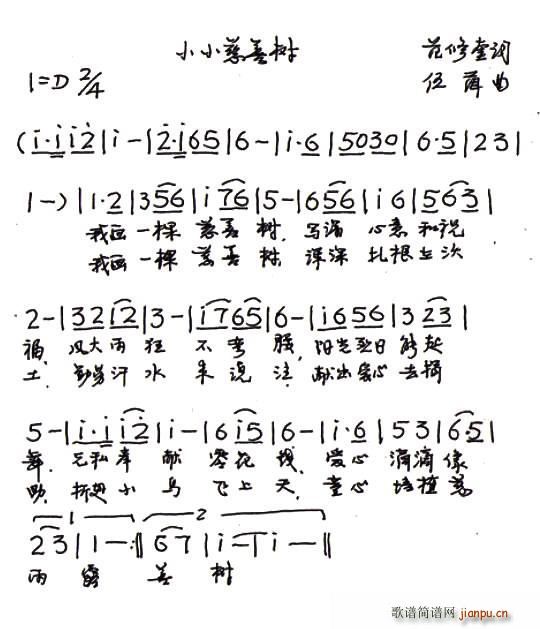 小小慈善树
范修奎词
1=D 2/4
伍 薛 曲
(i·i i 2|i -|2·i 6 5|6 -|i·6|5030|6·5|2 3|
1 -)|1·2|3 56|i 76|5 -|6 56|i 6|563|
我画一棵 慈善 树, 写满 心意 和祝
我画一棵 慈善 树, 深深 扎根 沃
2 -|32 i2|3 -|i765|6 -|i656|3 23|
福, 风大雨狂 不弯 腰, 阳光 能起
土, 汗水 来 浇 注, 献出爱心 去捐
5 -|i·i i2|i -|6 i5|6 -|i·6|5 3|65|
舞. 无私奉 献 零花 钱, 爱心 滴滴 像
助, 折翅小 鸟 飞上 天, 童心 培植 慈
1 2
23|1 -:‖67|i -|i -‖
雨 露 善 树
歌谱简谱网
jianpu.cn